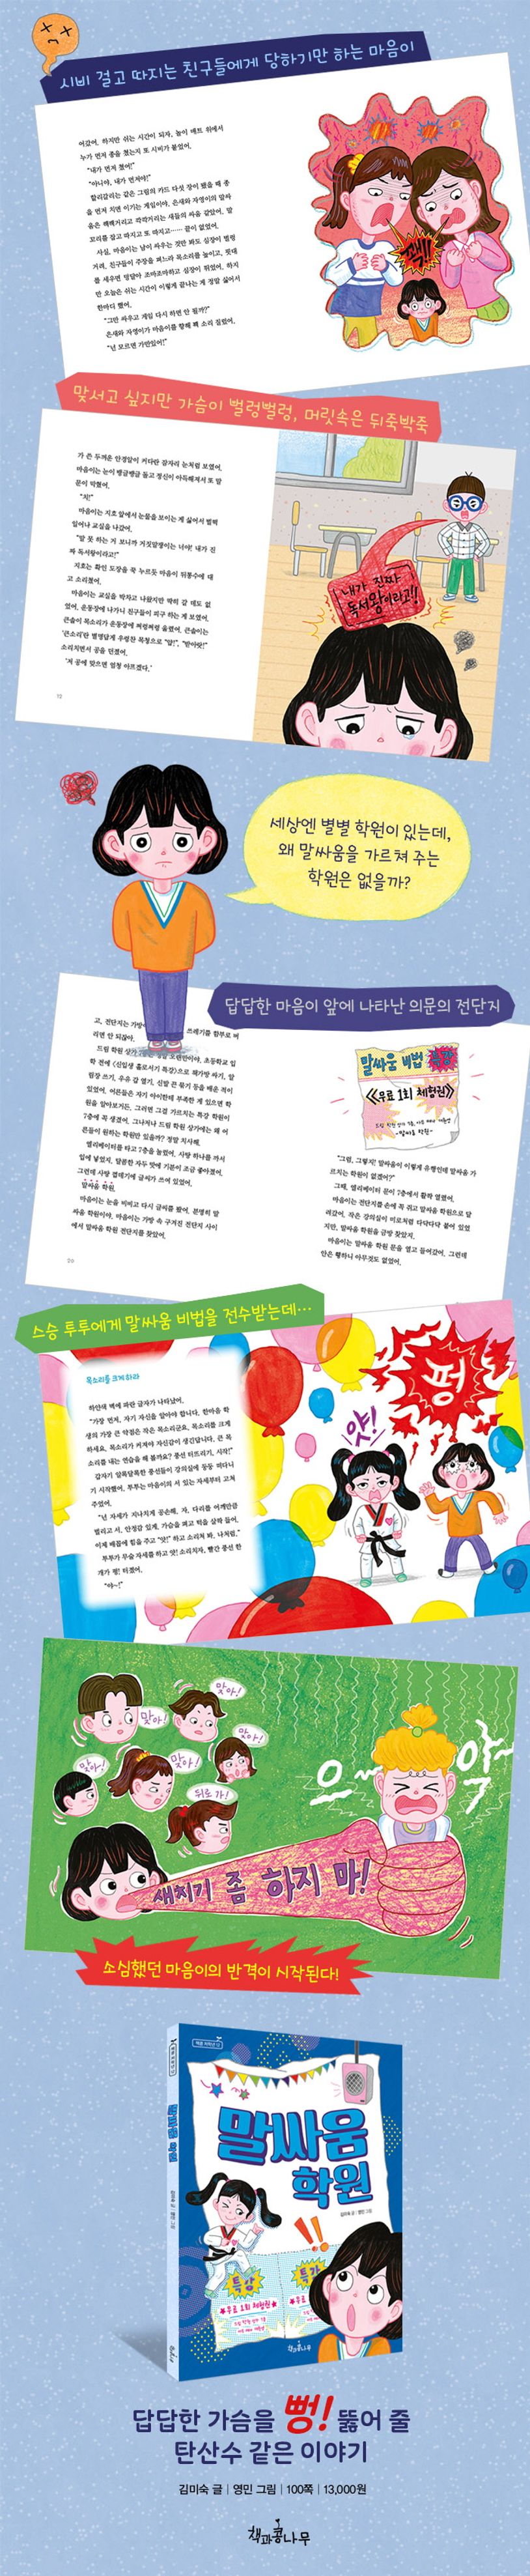 시비 걸고 따지는 친구들에게 당하기만 하는 마음이
어갔어. 하지만 쉬는 시간이 되자, 놀이 매트 위에서
누가 먼저 종을 쳤는지 또 시비가 붙었어.
"내가 먼저 쳤어!"
"아니야, 내가 먼저야!"
할리갈리는 같은 그림의 카드 다섯 장이 됐을 때 종
을 먼저 치면 이기는 게임이야. 은새와 자영이의 말싸
움은 짹짹거리고 깍깍거리는 새들의 싸움 같았어. 말
꼬리를 잡고 따지고 또 따지고…… 끝이 없었어.
사실, 마음이는 남이 싸우는 것만 봐도 심장이 벌렁
거려. 친구들이 주장을 펴느라 목소리를 높이고, 핏대
를 세우면 덩달아 조마조마하고 심장이 뛰었어. 하지
만 오늘은 쉬는 시간이 이렇게 끝나는 게 정말 싫어서
한마디 했어.
"그만 싸우고 게임 다시 하면 안 될까?"
은새와 자영이가 마음이를 향해 꽥 소리 질렀어.
"넌 모르면 가만있어!"
꽥!!
맞서고 싶지만 가슴이 벌렁벌렁, 머릿속은 뒤죽박죽
가 쓴 두꺼운 안경알이 커다란 잠자리 눈처럼 보였어.
마음이는 눈이 뱅글뱅글 돌고 정신이 아득해져서 또 말
문이 막혔어.
"치!"
마음이는 지호 앞에서 눈물을 보이는 게 싫어서 벌떡
일어나 교실을 나갔어.
"말 못 하는 거 보니까 거짓말쟁이는 너야! 내가 진
짜 독서왕이라고!"
지호는 확인 도장을 꾹 누르듯 마음이 뒤통수에 대
고 소리쳤어.
마음이는 교실을 박차고 나왔지만 딱히 갈 데도 없
었어. 운동장에 나가니 친구들이 피구 하는 게 보였어.
큰솔이 목소리가 운동장에 쩌렁쩌렁 울렸어. 큰솔이는
'큰소리'란 별명답게 우렁찬 목청으로 "얍!", "받아랏!"
소리치면서 공을 던졌어.
'저 공에 맞으면 엄청 아프겠다.'
내가 진짜
독서왕이라고!!
세상엔 별별 학원이 있는데,
왜 말싸움을 가르쳐 주는
학원은 없을까?
답답한 마음이 앞에 나타난 의문의 전단지
고, 전단지는 가방
쓰레기를 함부로 버
리면 안 되잖아.
7층에 꼭 생겼어. 그나저나 드림 학원 상가에는 왜 어
른들이 원하는 학원만 있을까? 정말 치사해.
엘리베이터를 타고 7층을 눌렀어. 사탕 하나를 까서
입에 넣었지. 달콤한 자두 맛에 기분이 조금 좋아졌어.
그런데 사탕 껍데기에 글씨가 쓰여 있었어.
말싸움 학원.
마음이는 눈을 비비고 다시 글씨를 봤어. 분명히 말
싸움 학원이야. 마음이는 가방 속 구겨진 전단지 사이
에서 말싸움 학원 전단지를 찾았어.
말싸움 비법 특강
《무료 1회 체험권》
-말싸움 학원-
"그럼, 그렇지! 말싸움이 이렇게 유행인데 말싸움 가
르치는 학원이 없겠어?"
그때, 엘리베이터 문이 7층에서 활짝 열렸어.
마음이는 전단지를 손에 꼭 쥐고 말싸움 학원으로 달
려갔어. 작은 강의실이 미로처럼 다닥다닥 붙어 있었
지만, 말싸움 학원을 금방 찾았지.
마음이는 말싸움 학원 문을 열고 들어갔어. 그런데
안은 휑하니 아무것도 없었어.
스승 투투에게 말싸움 비법을 전수받는데…
목소리를 크게 하라
하얀색 벽에 파란 글자가 나타났어.
"가장 먼저, 자기 자신을 알아야 합니다. 한마음 학
생의 가장 큰 약점은 작은 목소리군요. 목소리를 크게
하세요. 목소리가 커져야 자신감이 생긴답니다. 큰 목
소리를 내는 연습을 해 볼까요? 풍선 터뜨리기, 시작!"
갑자기 알록달록한 풍선들이 강의실에 둥둥 떠다니
기 시작했어. 투투는 마음이의 서 있는 자세부터 고쳐
주었어.
"넌 자세가 지나치게 공손해. 자, 다리를 어깨만큼
벌리고 서. 안정감 있게. 가슴을 펴고 턱을 살짝 들어.
이제 배꼽에 힘을 주고 "얏!" 하고 소리쳐 봐. 나처럼."
투투가 무술 자세를 하고 얏! 소리치자, 빨간 풍선 한
개가 펑! 터졌어.
"야~!"
얏!
펑
맞아!
맞아!
맞아!
맞아!
맞아!
뒤로 가!
으~~악~
새치기 좀 하지 마!
소심했던 마음이의 반격이 시작된다!
말싸움 학원
말싸움
학원
김미숙 글 영민 그림
특강
특강
무료 1회 체험권
책과콩나무
답답한 가슴을 뻥! 뚫어 줄
탄산수 같은 이야기
김미숙 글 | 영민 그림 | 100쪽 | 13,000원
책과콩나무